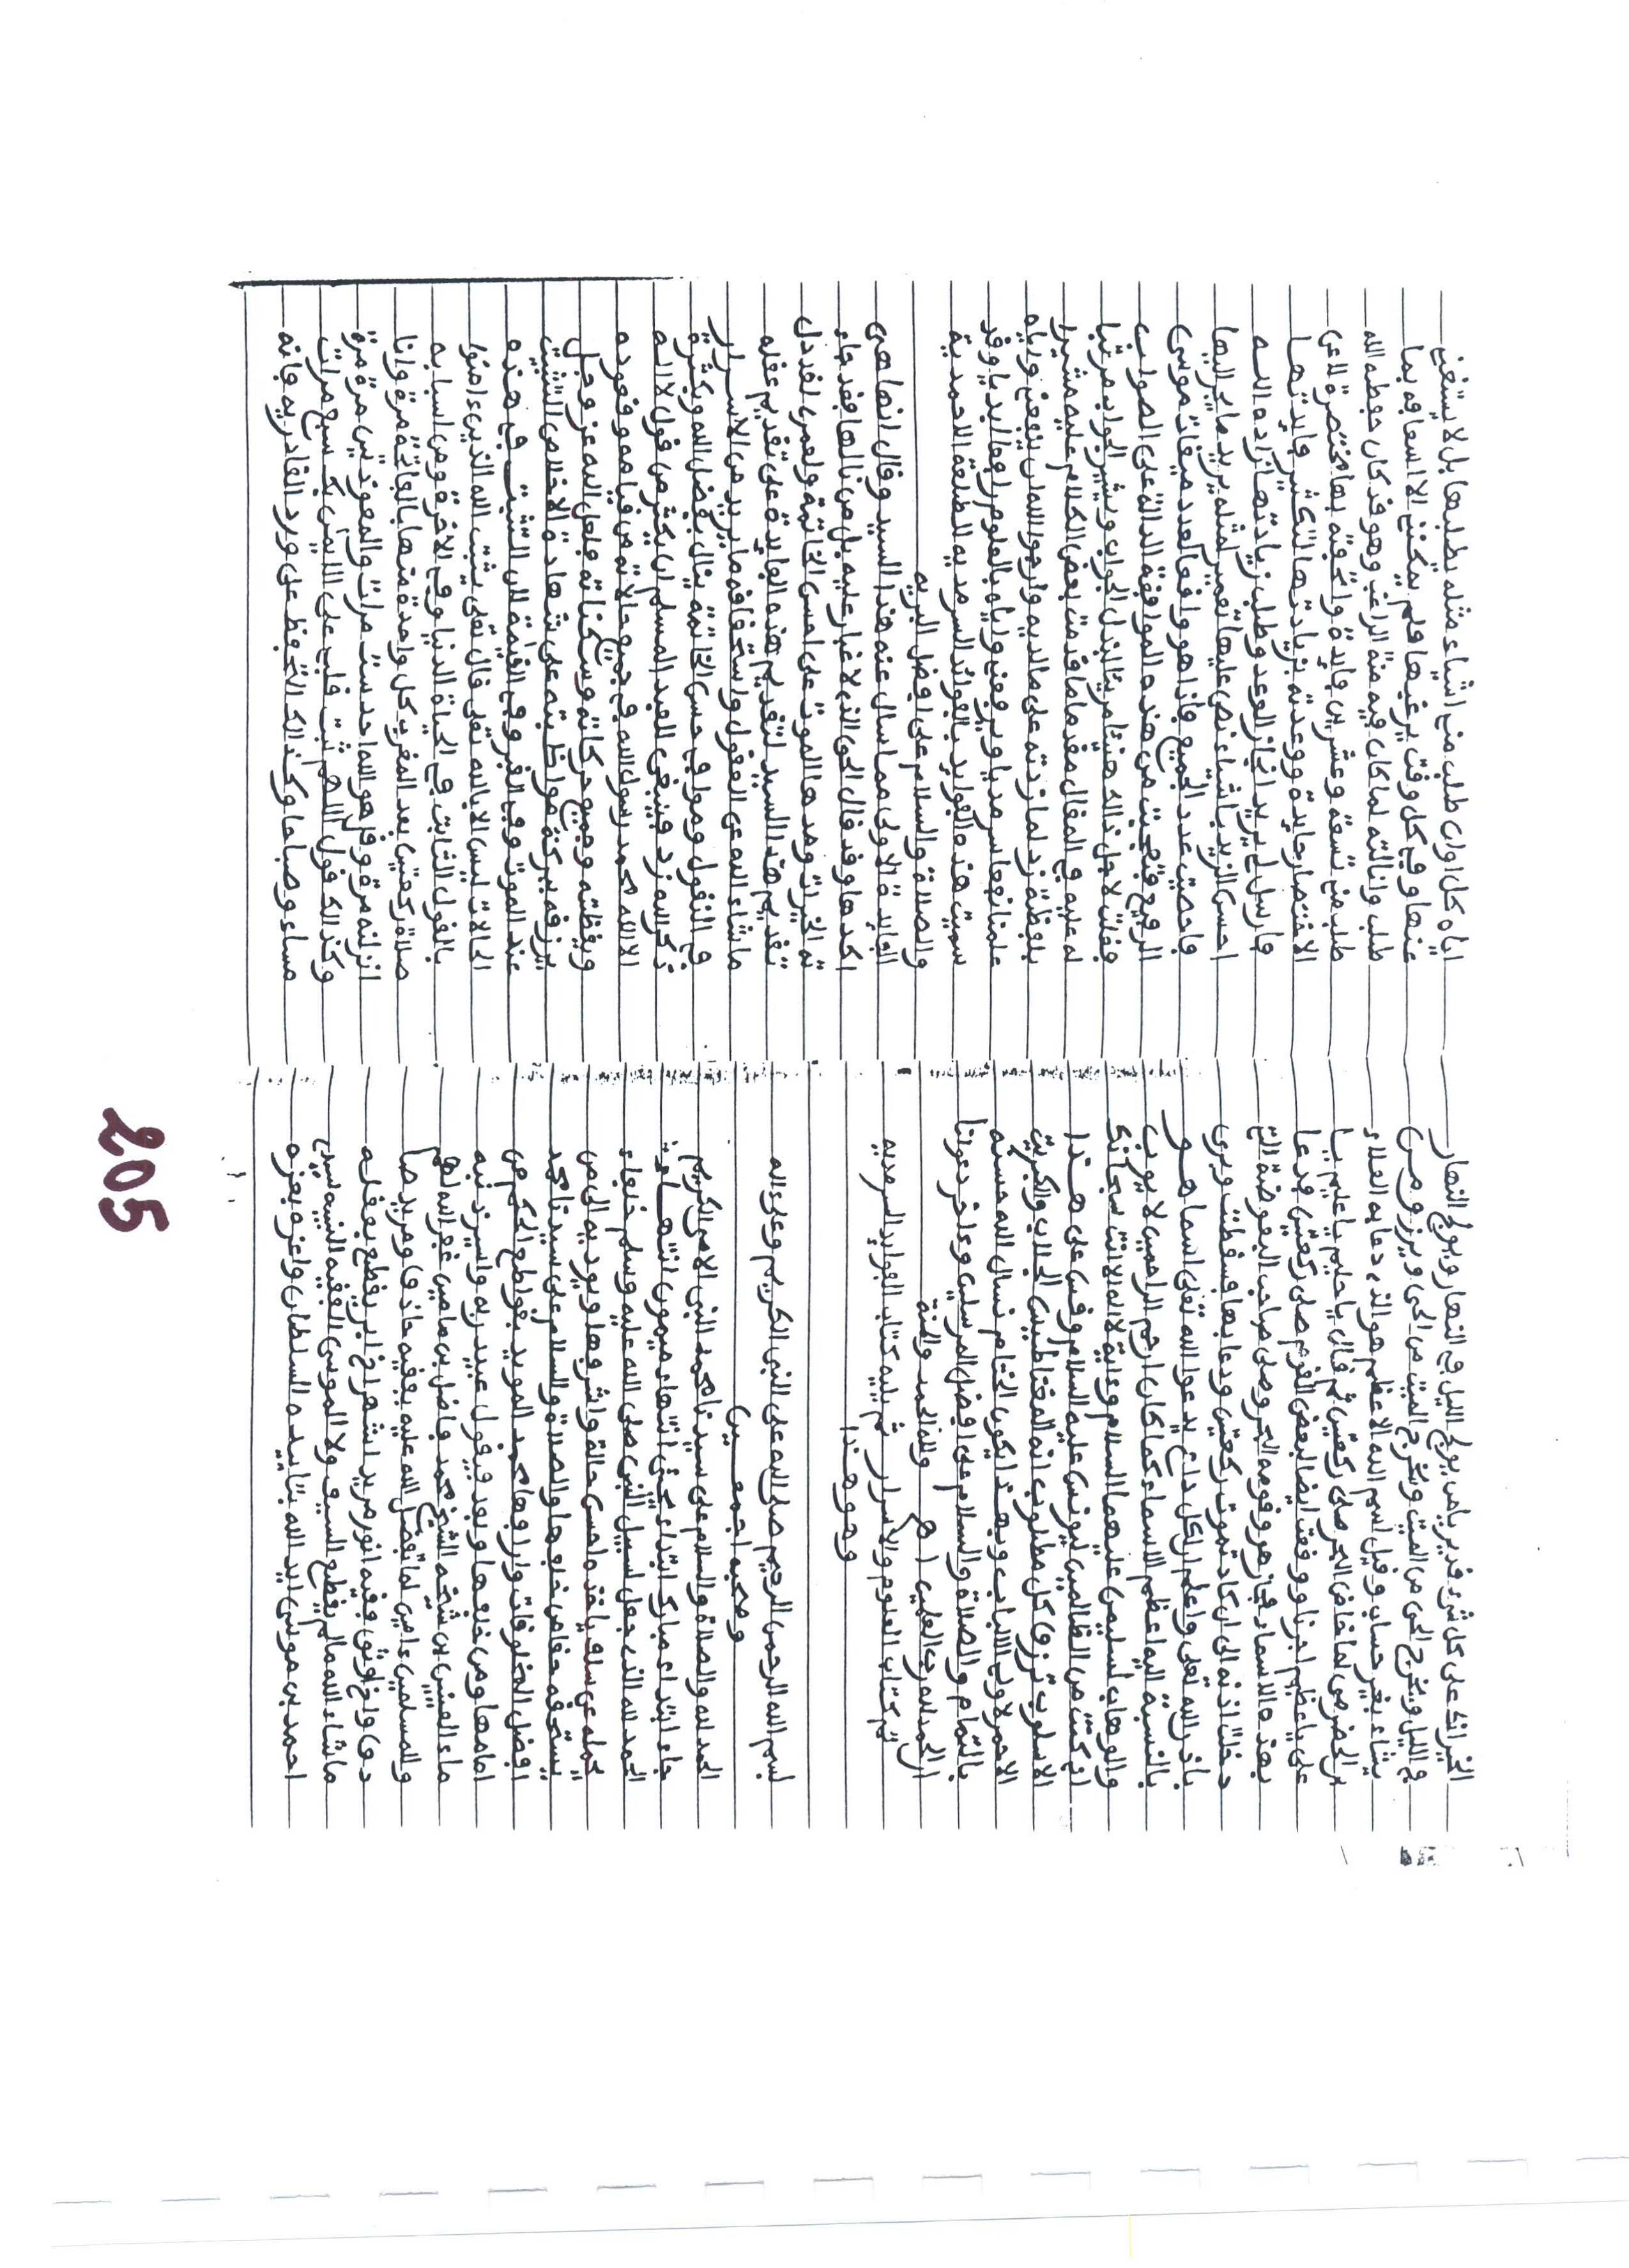 الخير انك على كل شيء قدير يا من يولج الليل في النهار ويولج النهار
في الليل ويخرج الحي من الميت ويخرج الميت من الحي ويرزق من
يشاء بغير حساب وقيل اسم الله الاعظم هو الذي دعا به العلاء
بن الحضرمي لما خاض البحر صلى ركعتين ثم قال يا حليم يا عليم يا
على يا عظيم اجرنا ووقعت ايضا لبعض القوم صلى ركعتين ودعا
بهذه الاسماء فجاز هو وقومه البحر وصلى صاحب البعوضة التي
دخلت اذنه الى ان كاد تموت ركعتين ودعا بها فسقطت وبرى
باذن الله تعلى واعلم ان كل داع يدعوا الله تعلى باسما هو
بالنسبة اليه اعظم الاسماء كما كان ارحم الراحمين لايوب
والوهاب لسليمن عليهما السلام وءاية لا اله الا انت سبحانك
اني كنت من الظالمين ليونس عليه السلام وقس على هذا
الاسلوب ترزق كل مطلوب انه المغناطيس الجلاب والكبريت
الاحمر لاولى الالباب وبهذا يكون الختام نسال الله حسنه
بالتمام والصلاة والسلام على افضل المرسلين وءاخر دعوانا
ان الحمد لله رب العلمين اهـ ولله الحمد والمنة
تم كتاب العلوم والاسرار ثم يليه كتاب الفوايد السرمديه
وهو هذا
بسم الله الرحمن الرحيم صلى الله على النبي الكريم وعلى ءاله
وصحبه اجمعين
الحمد لله والصلاة والسلام على سيدنا محمد النبي الامي الكريم
جاء ابتداء مبارك ابتداء يحق انتهاء ميمون انتهاء
الحمد لله الذي جعل لسبيل النبي صلى الله عليه وسلم خلفاء
تحمله عن سلف ياخذه احسن حالة واشرفها ويوديه الى من
يستحقه حقا من خلفها والصلاة والسلام على سيدنا محمد
افضل المخلوقات وارافها محمد المويد بقواطع الحكم من
امامها ومن خلفها وبعد فيقول عبيد ربه واسير ذنبه
ماء العينين بن شيخه الشيخ محمد فاضل بن مامين غفر الله لهم
وللمسلمين ءامين لما تفضل الله عليه بفقيه حاذق ومريد صا
دق واخ اوثق فقيه انور مريد اشهر اخ ابر يقطع بعقله
ما شاء الله مالم يقطع السيف ولا الموسى الفقيه النبيه سيدي
احمد بن موسى ايد الله بتاييده السلطان واعزه بعزه
اياه كل اوان طلب مني اشياء مثله يطلبها بل لا يستغنى
عنها وفي كل وقت يرغبها فلم يمكنني الا اسعافه بما
طلب وانالته لما كان فيه منه الراغب وهو قد كان حفظه الله
طلب مني تسعة وعشرين فايدة واتحفته بها مختصرة للاعن
الاختصار بفايدة ووعدته بزيادتها لتكثير فايدتها
فارسل لي يريد انجاز الوعد وطلب زيادتها زاده الله
احسن المزيد باشياء نص عليها تعمير لمثله يريد ما يريد اليها
فاحصيت عدد الجميع فاذا هو وافق العدد ميقات موسى
الرفيع فتعجبت من هذه الموافقة الدالة على الصواب
فقلت لاجل ذالك هنيئا مريئا لنيل الجواب ويشير الجواب مرتبا
له عليه في المقال مقدما ما قدمت بعض الكلام عليه مشيرا
بلفظة زد لما زدته على ما لديه وارجو الله ان ينفعني واياه
علمنا نفعا سرمديا ويرفعني واياه بالعلوم رفعا ابديا وقد
سميت هذه الفوايد بالفوائد السرمديه للطلعة الاحمديه
والصلاة والسلام على افضل البريه
الفايدة الاولى مما سال عنه هذا السيد وقال انها هي
اكدها وقد قال الحق الذي لا غبار عليه بل من نالها فقد جاء
ته الخيرات ومدها الموت على احسن الخاتمة ولعمري لقد دل
تقديم هذا السيد لتقديم هذه الفايدة على تقديم عقله
ما شاء الله في العقول واستحقاقه ما يريد من الاسرار
في النقول ومما في حسن الخاتمة ينال بفضل الله ويكثره
ذكر الله زد فينبغي للعبد المسلم ان يكثر من قول لا اله
الا الله محمد رسول الله في جميع حالاته من قيامه وقعوده
ويقظته وجميع حركاته وسكناته فلعل الله عز وجل
يرزقه ببركة مواظبته على شهادة الاخلاص التثبيت
عند الموت وفي القبر وفي القيامة لان التثبت في هذه
الحالات ليس الا بالله تعلى قال تعلى يثبت الله الذين ءامنوا
بالقول الثابت في الحياة الدنيا وفي الاخرة ومن اسبابه
صلاة ركعتين بعد المغرب كل واحدة منهما بالفاتحة مرة وانا
انزلنه مرة وقل هو الله احد ست مرات والمعوذتين مرة مرة
وكذالك قول اللهم ثبت قلبي على الايمن بك سبع مرات
مساء وصباحا وكذالك التحفظ على ورد القادريه فانه
205